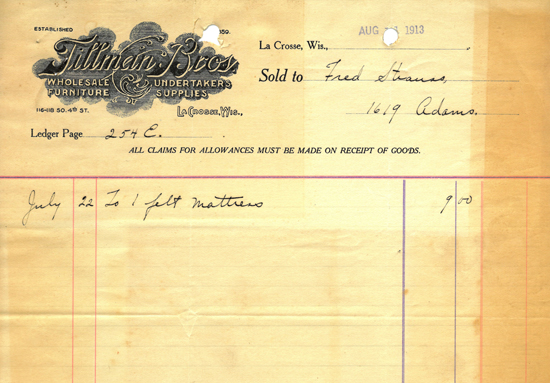 ESTABLISHED 1859.
Tillman Bros.
WHOLESALE & UNDERTAKERS
FURNITURE SUPPLIES
116-118 SO. 4TH ST. LA CROSSE, WIS.,
La Crosse, Wis., AUG 1913
Sold to Fred Strauss,
1619 Adams.
Ledger Page 254 C.
ALL CLAIMS FOR ALLOWANCES MUST BE MADE ON RECEIPT OF GOODS.
July 22 To 1 felt mattress 9 00